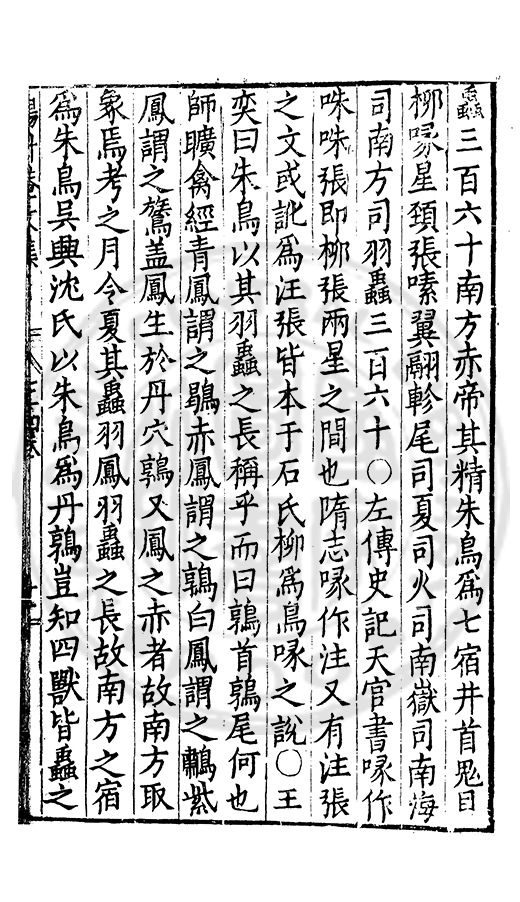 蟲三百六十南方赤帝其精朱鳥爲七宿井首鬼目
柳喙星頸張嗉翼翮軫尾司夏司火司南嶽司南海
司南方司羽蟲三百六十○左傳史記天官書喙作
咮咮張即柳張兩星之間也隋志喙作注又有注張
之文或訛爲汪張皆本于石氏柳爲鳥喙之說○王
奕曰朱鳥以其羽蟲之長稱乎而曰鶉首鶉尾何也
師曠禽經青鳳謂之鶡赤鳳謂之鶉白鳳謂之鷫紫
鳳謂之鷟盖鳳生於丹穴鶉又鳳之赤者故南方取
象焉考之月令夏其蟲羽鳳羽蟲之長故南方之宿
爲朱鳥吳興沈氏以朱鳥爲丹鶉豈知四獸皆蟲之